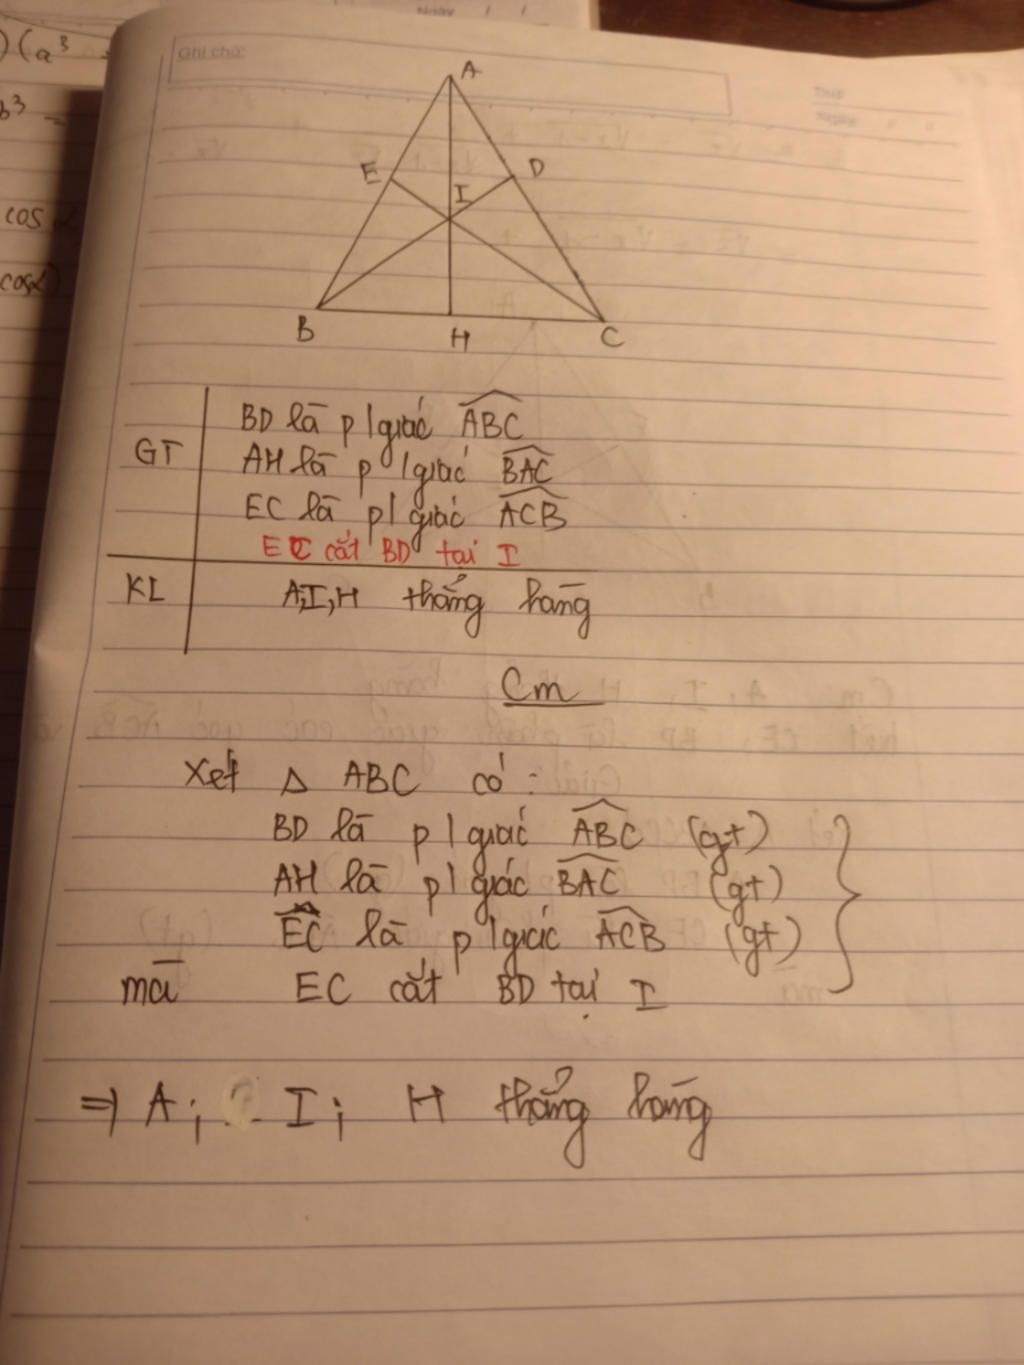 ) (a³
b³ =
cos
cosα)
Ngày / /
Ghi chú:
Thứ
Ngày
A
E
D
I
B
H
C
GT
BD là p/giác ABC
AH là p/giác BAC
EC là p/giác ACB
EC cắt BD tại I
KL
A,I,H thẳng hàng
Cm
Xét Δ ABC có:
BD là p/giác ABC (gt)
AH là p/giác BAC (gt)
EC là p/giác ACB (gt)
mà EC cắt BD tại I
=> A; I; H thẳng hàng